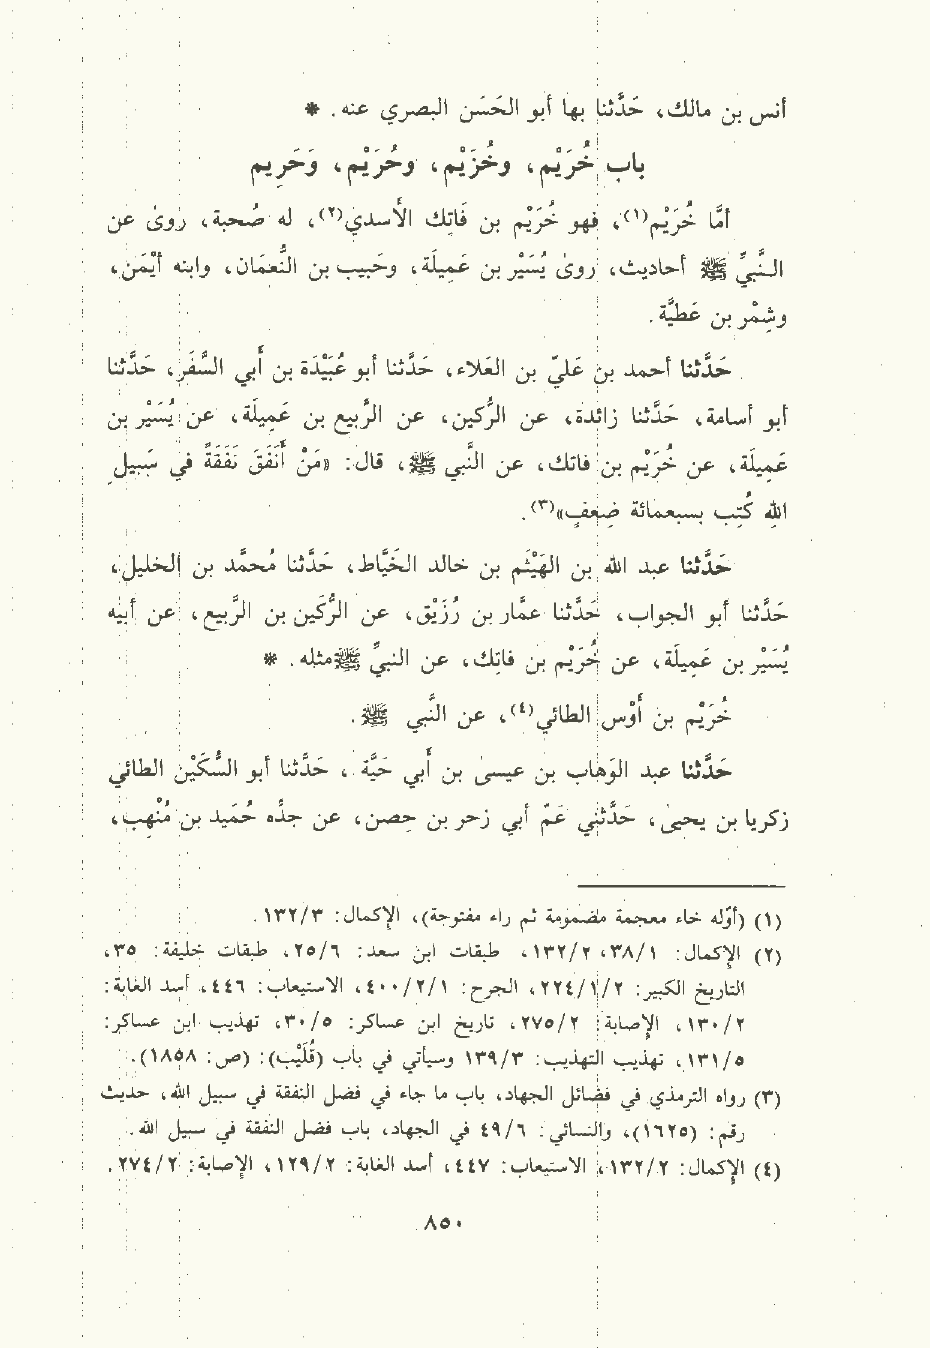 أنس بن مالك، حَدَّثنا بها أبو الحَسَن البصري عنه. *
باب خُرَيْم، وخُزَيْم، وحُرَيْم، وَحَرِيم
أمَّا خُرَيْم(١)، فهو خُرَيْم بن فَاتِك الأسدي(٢)، له صُحبة، روىٰ عن
النَّبيِّ ﷺ أحاديث، روىٰ يُسَيْر بن عَمِيلَة، وحَبيب بن النُّعمَان، وابنه أيْمَن،
وشِمْر بن عَطيَّة.
حَدَّثنا أحمد بن عَليّ بن العَلاء، حَدَّثنا أبو عُبَيْدَة بن أَبي السَّفَر، حَدَّثنا
أبو أسامة، حَدَّثنا زائدة، عن الرُّكين، عن الرَّبيع بن عَمِيلَة، عن يُسَيْر بن
عَمِيلَة، عن خُرَيْم بن فاتك، عن النَّبي ﷺ، قال: «مَنْ أَنفَقَ نَفَقَةً في سَبيلِ
اللهِ كُتِب بسبعمائة ضِعفٍ»(٣).
حَدَّثنا عبد الله بن الهَيْثَم بن خالد الخَيَّاط، حَدَّثنا مُحمَّد بن الخليل،
حَدَّثنا أبو الجواب، حَدَّثنا عمَّار بن رُزَيْق، عن الرُّكَين بن الرَّبيع، عن أبيه
يُسَيْر بن عَمِيلَة، عن خُرَيْم بن فاتِك، عن النبيِّ ﷺ مثله. *
خُرَيْم بن أَوْس الطائي(٤)، عن النَّبي ﷺ.
حَدَّثنا عبد الوَهاب بن عيسىٰ بن أَبي حَيَّة، حَدَّثنا أبو السُّكَيْن الطائي
زكريا بن يحيىٰ، حَدَّثني عَمّ أبي زحر بن حِصن، عن جدِّه حُمَيد بن مُنْهِب،
(١) (أوّله خاء معجمة مضمومة ثم راء مفتوحة)، الإكمال: ١٣٢/٣.
(٢) الإكمال: ٣٨/١، ١٣٢/٢، طبقات ابن سعد: ٢٥/٦، طبقات خليفة: ٣٥،
التاريخ الكبير: ٢٢٤/١/٢، الجرح: ٤٠٠/٢/١، الاستيعاب: ٤٤٦، أسد الغابة:
١٣٠/٢، الإصابة: ٢٧٥/٢، تاريخ ابن عساكر: ٣٠/٥، تهذيب ابن عساكر:
١٣١/٥، تهذيب التهذيب: ١٣٩/٣ وسيأتي في باب (قُلَيْب): (ص: ١٨٥٨).
(٣) رواه الترمذي في فضائل الجهاد، باب ما جاء في فضل النفقة في سبيل الله، حديث
رقم: (١٦٢٥)، والنسائي: ٤٩/٦ في الجهاد، باب فضل النفقة في سبيل الله.
(٤) الإكمال: ١٣٢/٢، الاستيعاب: ٤٤٧، أسد الغابة: ١٢٩/٢، الإصابة: ٢٧٤/٢.
٨٥٠